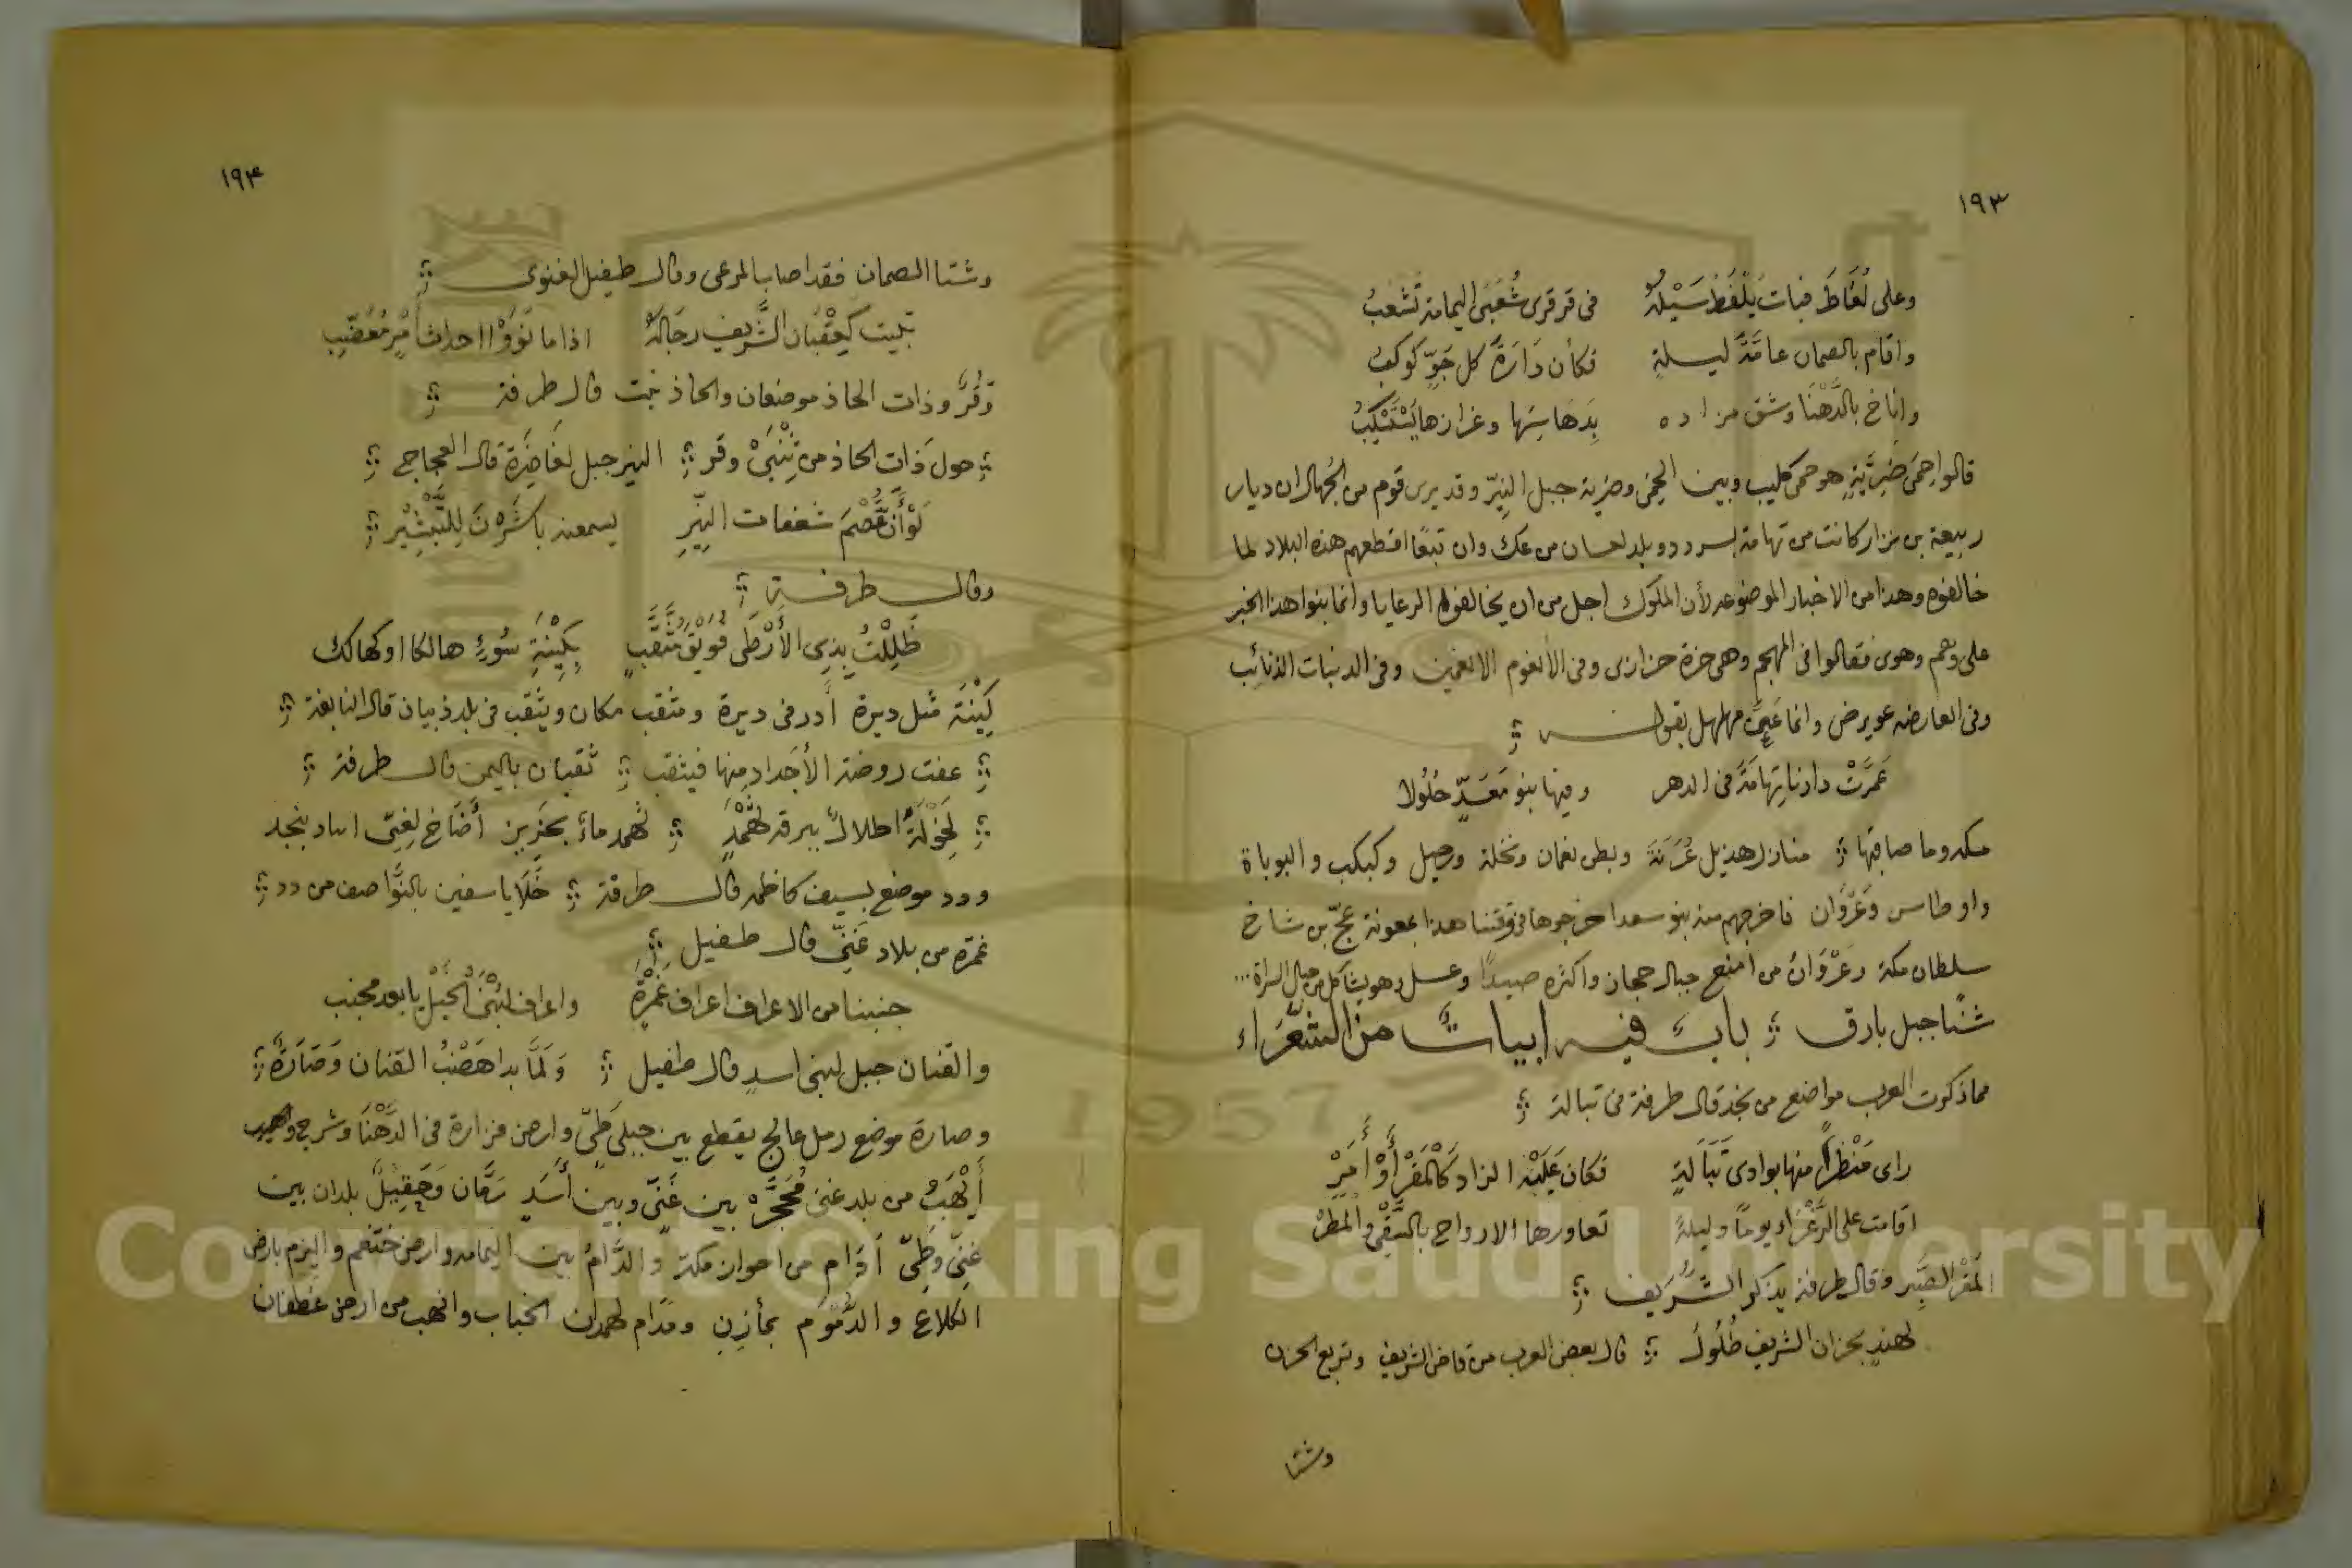 ١٩٣
وعلى لُغَاطَ فبات يَلْغَطُ سَيْلُهُ في قرقرى شُعَبَى اليمامة تَشْعَبُ
واقام بالصمان عامَّةَ ليلةٍ فكأن دَارَةَ كل جَوٍّ كوكبُ
واناخ بالدَّهْنَا وشق من اده بِدَهَاسِهَا وغزازها يَسْتَسْكِبُ
قالوا حِمَى ضَرِيَّةٍ هو حمى كليب وبين الحِمَى وضرية جبل النِيْر وقد يرى قوم من الجُهال ان ديار
ربيعة بن نزار كانت من تهامة بسردد و بلد لعسان من عك وان تبعًا اقطعهم هذه البلاد لما
خالفوه وهذا من الاخبار الموضوعه لأن الملوك اجل من ان يخالفوا الرعايا وانما بنوا هذا الخبر
على وهم وهوى فقالوا في المهجم وهي خزة خزازى وفى الأنعوم الانعمين وفى الدنبات الذنائب
وفى العارضه عويرض وانما عَنَى مهلهل بقول
عَمَرَتْ دارنا تِهَامَةَ فى الدهر وفيها بنو مَعَدٍّ حُلُولا
مكه وما صاقبها منازل هذيل عُرَنَة وبطن نعمان ونخلة ورحيل وكبكب والبوباة
واوطاس وَغَزْوَان فاخرجهم منه بنو سعد اخرجوها في وقتنا هذا بمعونة عجّ بن شاخ
سلطان مكة وغَزْوَانُ من امنع جبال حجاز واكثره صيدًا وعسلا وهو يشاكل من جبال السراة ...
شَنًا جبل بارق بابٌ فيه ابياتٌ من الشعراء
مما ذكرت العرب مواضع من نجد قال طرفة في تبالة
راى مَنْظرًا منها بوادى تَبَالَةٍ فكان عَلَيْهِ الزاد كَالْمَقْرِ أَوْ أَمَرْ
اقامت على الزَّعْرَاء يومًا وليلةً تعاورها الارواح بالسَّفْي والمطرْ
المَقْرِ الصَّبِر وقال طرفة يذكر الشُّرَيف
لهندٍ بحزان الشريف طُلُولُ قال بعض العرب من قاض الشريف وتربع الحزن
وشتا
١٩٤
وشتا الصمان فقد اصاب المرعى وقال طيفيل الغنوى
تبيت كَعِقْبَان الشَّرِيف رجَالُهُ اذا ما نَوَوْا احداث أَمْرٍ مُعَضِّبِ
وَقُرٌّ وذات الحاذ موضعان والحاذ نبت قال طرفة
حول ذَات الحاذ من ثِنْيَيْ وقر النير جبل لغَاضِرَة قال العجاج
لَوْ أَنَّ عُصْمَ شعفات النِيْرِ يسمعنه باشَرْنَ لِلتَّبْشِيْرِ
وقال طرفة
ظَلِلْتُ بِذِي الأَرْطَى فُوَيْقَ مُثَقَّبٍ بِكَيْنَةِ سُوْءٍ هالكا او كهالك
كَيْنَة مثل ديرة أدر فى ديرة ومثقب مكان ويثقب فى بلد ذبيان قال النابغة
عفت روضة الأَجْدَاد منها فيثقب ثقبان باليمن قال طرفة
لِخَوْلَةَ اطلالٌ ببرقه ثَهْمَدِ ثهمد ماءٌ بحَزِيز أُضَاخ لغَنِيّ اساد بنجد
ودد موضع بسيف كاظمه قال طرفة خَلَايا سفين بالنَّوَاصف من دد
غمرة من بلاد غَنِيّ قال طفيل
جنبنا من الاعراف اعراف غَمْرَةٍ واعراف لُبْنَى الخَيْلَ يا بعد مجنب
والقنان جبل لبنى اسدٍ قال طفيل وَلَمَّا بدا هَضْبُ القنان وَصَارَةٌ
وصارة موضع رمل عالج يقطع بين جبلى طَيٍّ وارض فزارة فى الدَّهْنَا وشرج واهيب
أَيْهَبُ من بلد غنى مُحَجَّرٌ بين غَنِيّ وبين أَسَدٍ رَمَّان وَحَقِيْلُ بلدان بين
غَنِيّ وطَيّ أدَام من احوان مكة والدَّامُ بين اليمامه وارض خثعم واليزم بارض
الكلاع والدَّمُوْم بمأزِنِ ومدَام لهمدان الخباب وانهب من ارض غطفان